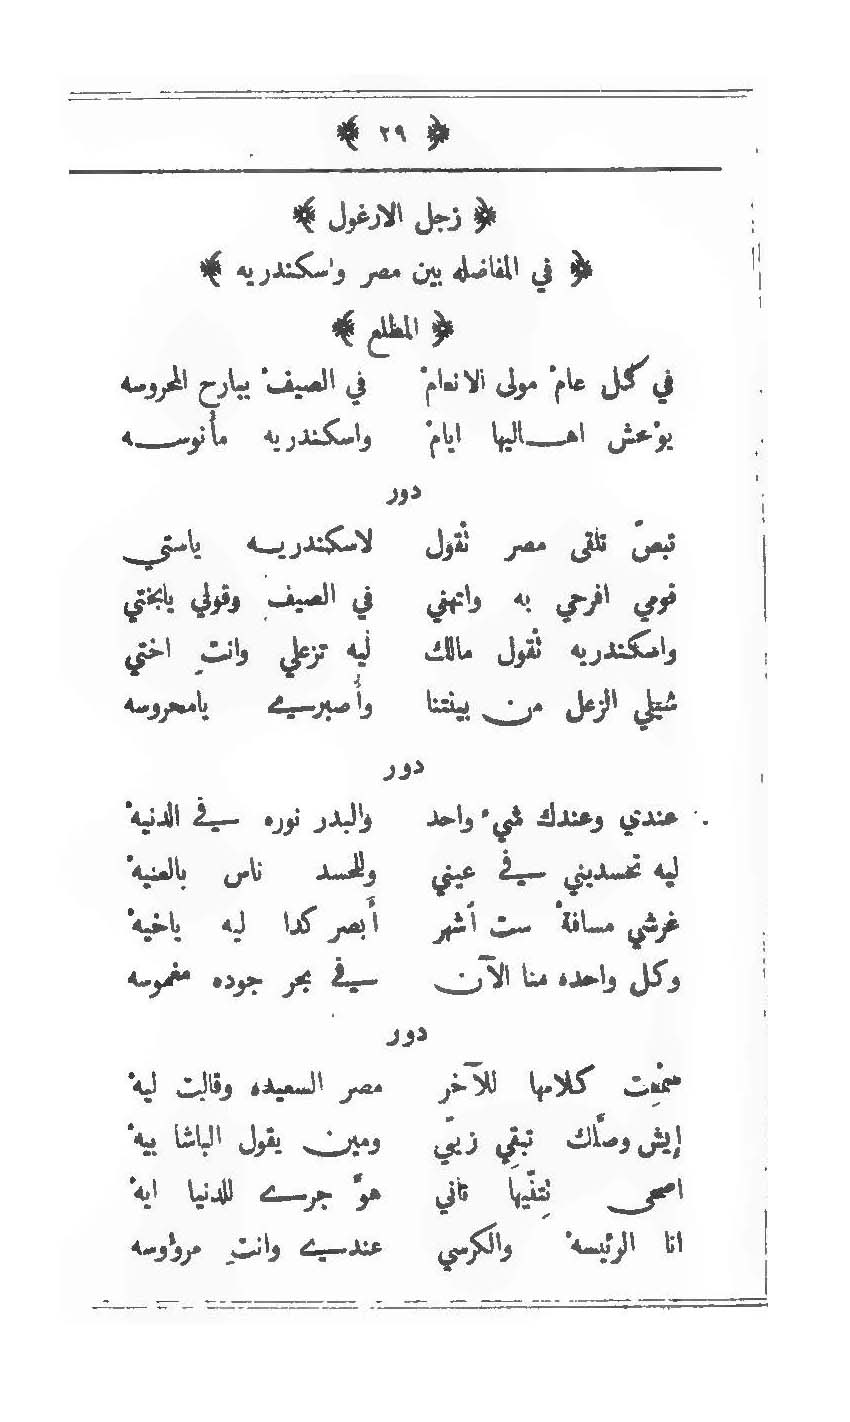 ﴿ ٢٩ ﴾
﴿ زجل الارغول ﴾
﴿ في المفاضله بين مصر واسكندريه ﴾
﴿ المطلع ﴾
في كل عامْ مولى الانعامْ في الصيفْ يبارح المحروسه
يوْحش اهـاليها ايامْ واسكندريه مأنوسـه
دور
تبصّ تلقى مصر تْقول لاسكندريـه ياستي
قومي افرحي به واتهني في الصيف وقولي يابختي
واسكندريه تْقول مالك ليه تزعلي وانتِ اختي
شيلي الزعل من بينتنا وأُصبري يامحروسه
دور
عندي وعندك شيء واحد والبدر نوره في الدنيهْ
ليه تحسديني في عيني وللحسد ناس بالعنيهْ
غرشي مسافةْ ست اشهر أَبصر كدا ليه ياخيهْ
وكل واحده منا الآن في بحر جوده مغموسه
دور
سمْعِت كلامها للآخر مصر السعيده وقالت ليهْ
إيش وصَّلك تبقِي زيّي ومين يقول الباشا بيهْ
اصحى تِتفّيها تاني هوَّ جرى للدنيا ايهْ
انا الرئيسهْ والكرسي عندي وانتِ مرؤوسه